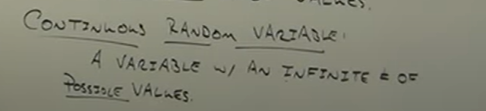 VALUES.
CONTINUOUS RANDOM VARIABLE:
A VARIABLE W/ AN INFINITE # OF
POSSIBLE VALUES.